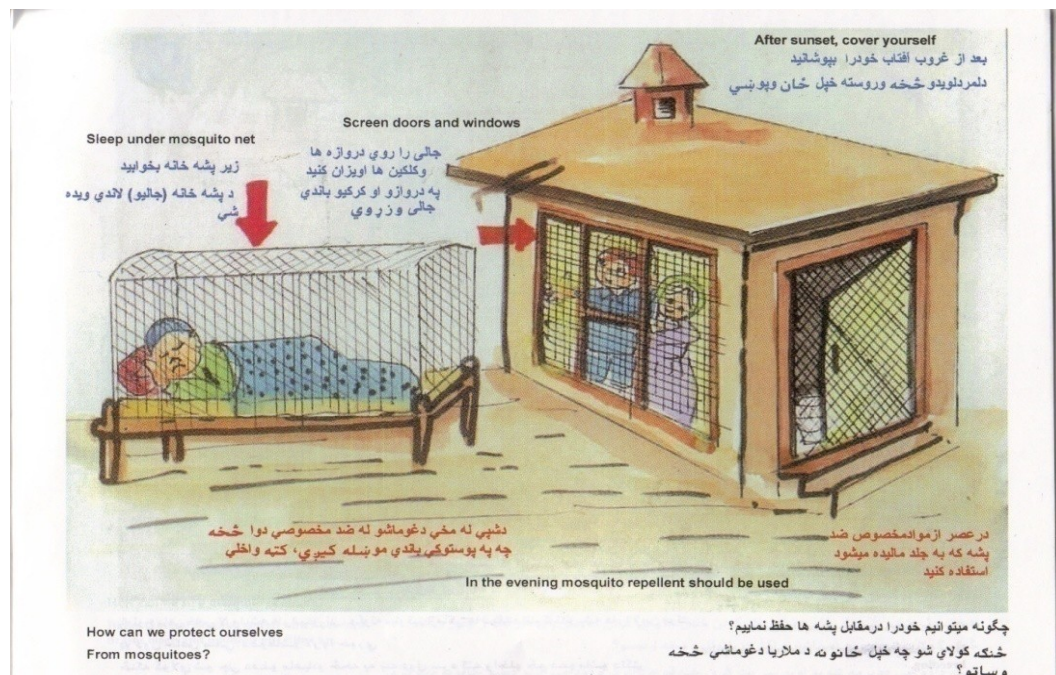 After sunset, cover yourself
بعد از غروب آفتاب خودرا بپوشانید
دلمردلویدو څخه وروسته خپل ځان وپوښي
Screen doors and windows
جالی را روي دروازه ها
وکلکین ها اویزان کنید
په دروازو او کرکیو باندي
جالی وزړوي
Sleep under mosquito net
زیر پشه خانه بخوابید
د پشه خانه (جالیو) لاندي ویده
شي
دشپي له مخي دغوماشو له ضد مخصوصي دوا څخه
چه په پوستوکي باندي موښله کیږي، کته واخلي
در عصر ازموادمخصوص ضد
پشه که به جلد مالیده میشود
استفاده کنید
In the evening mosquito repellent should be used
How can we protect ourselves
From mosquitoes?
چگونه میتوانیم خودرا درمقابل پشه ها حفظ نماییم؟
څنګه کولای شو چه خپل ځانونه د ملاریا دغوماشي څخه
وساتو؟